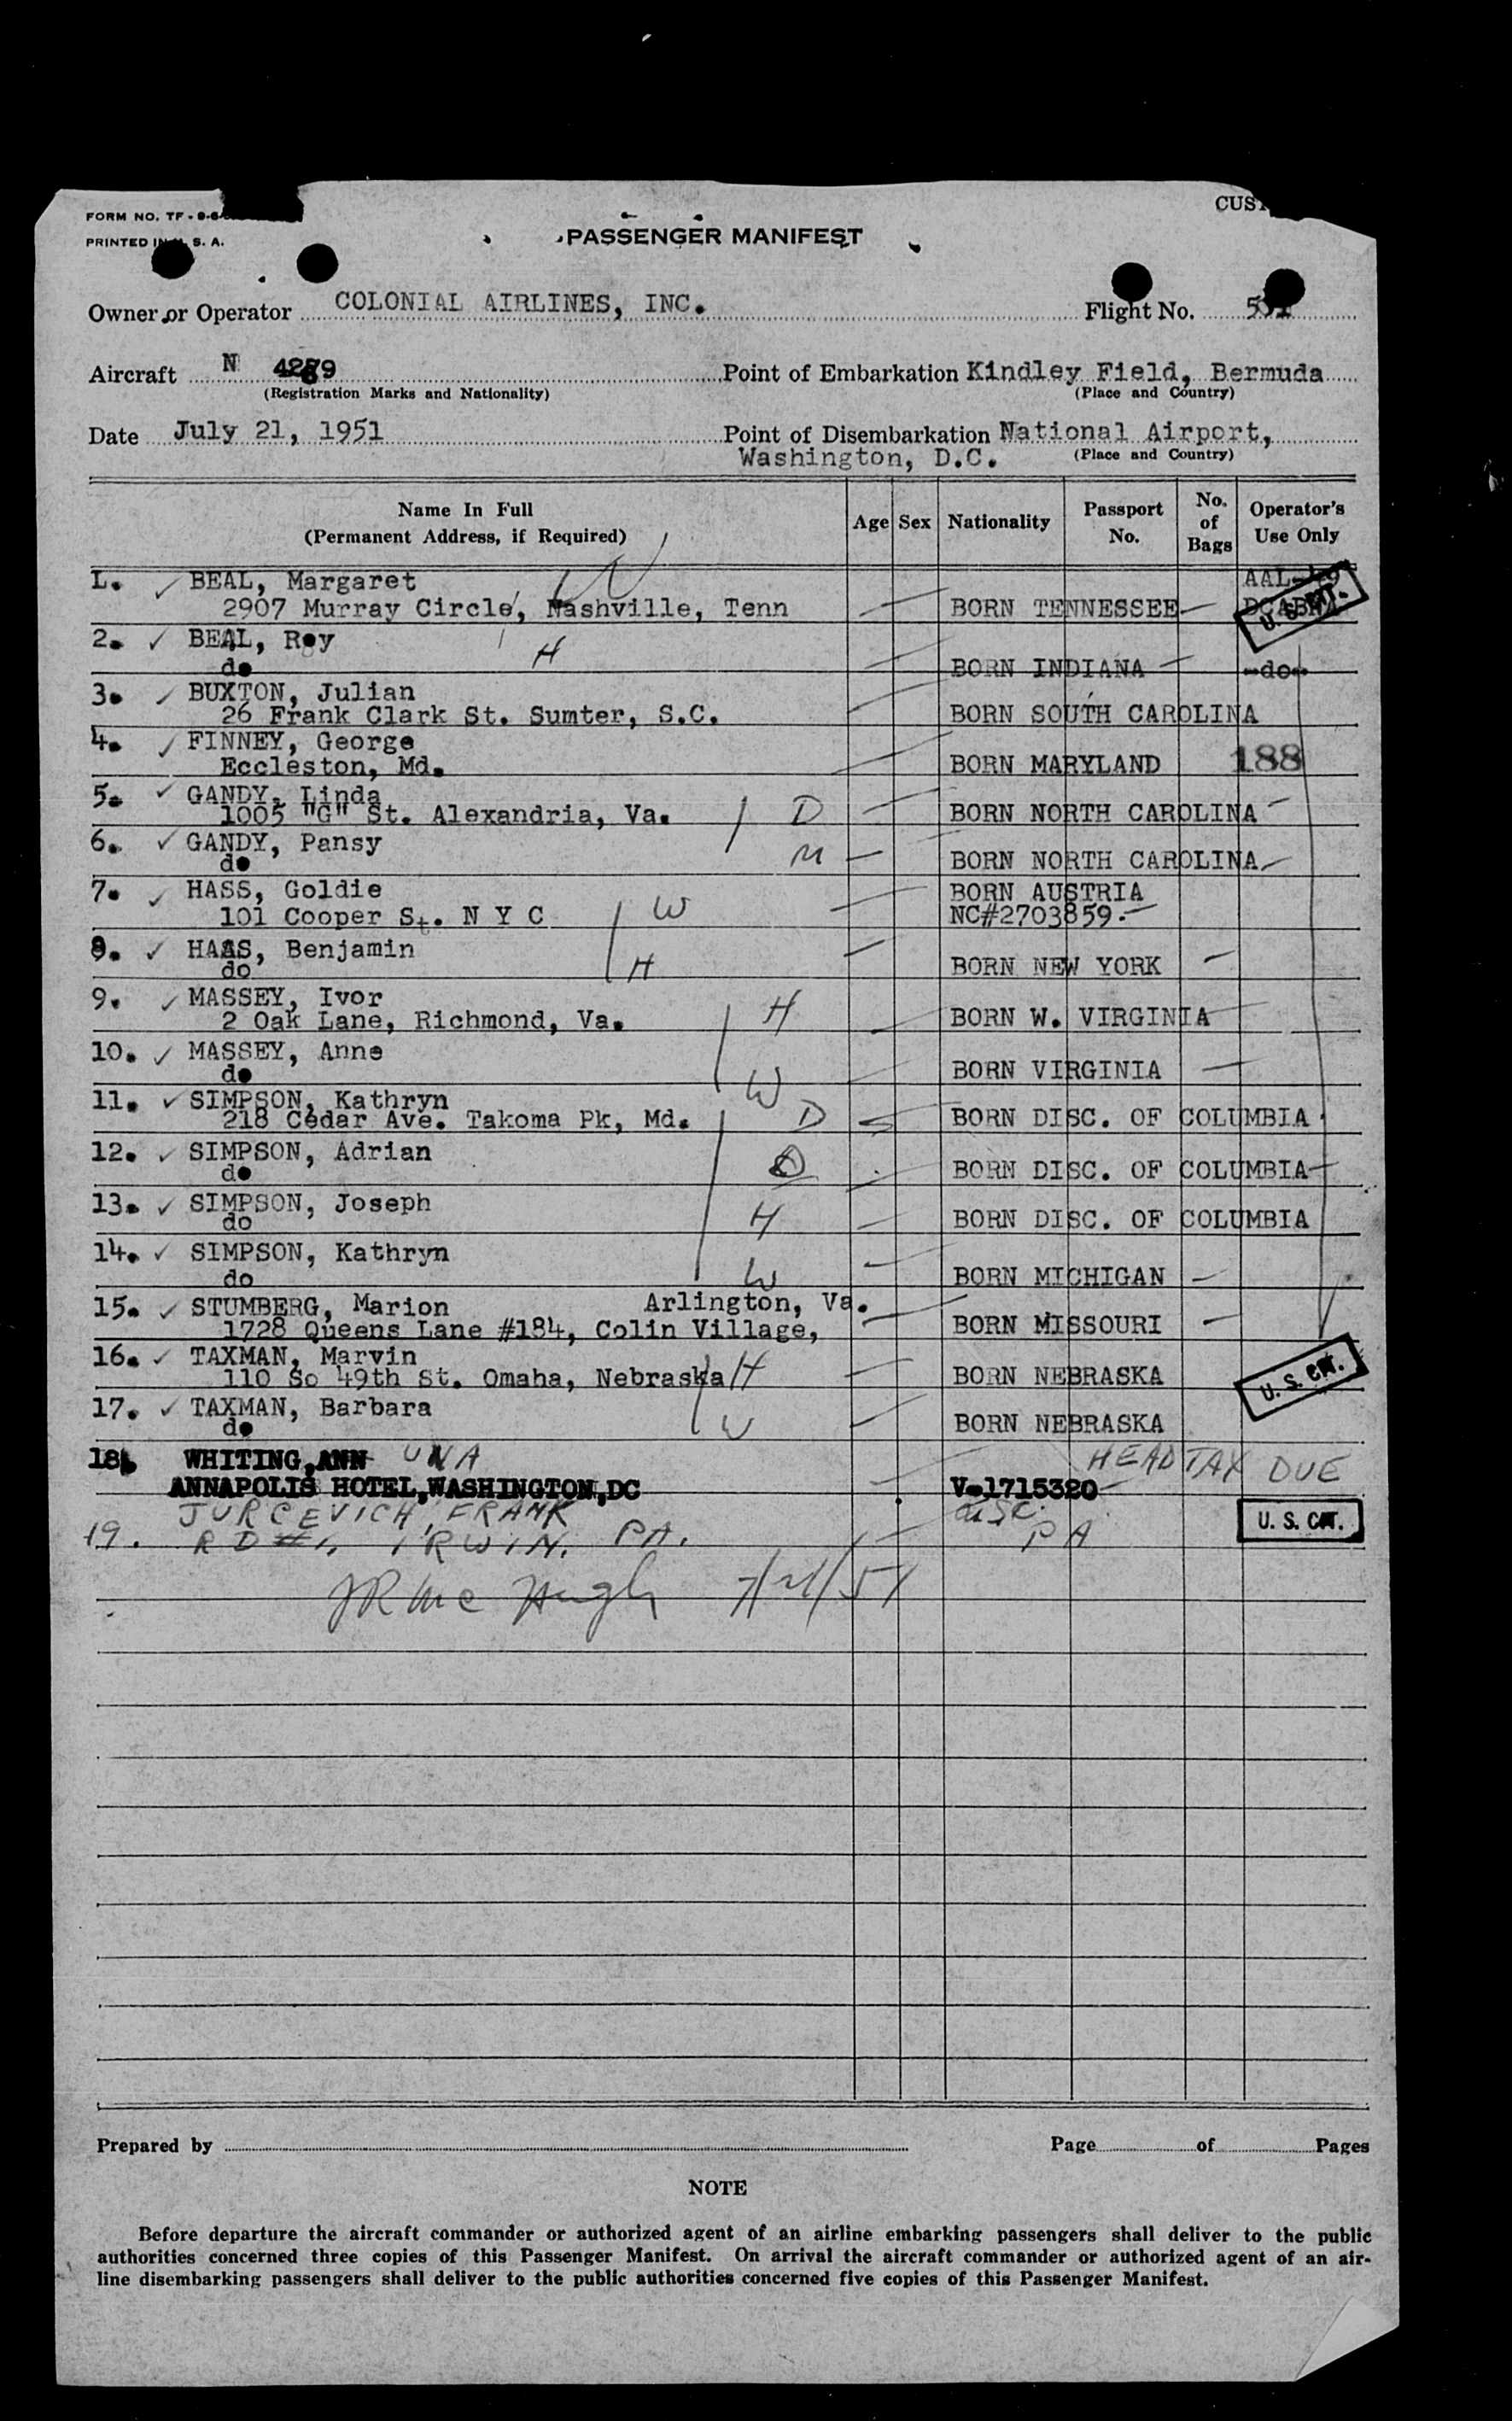 FORM NO. TF - 9-6
CUST
PRINTED IN U. S. A.
PASSENGER MANIFEST
Owner or Operator COLONIAL AIRLINES, INC. Flight No.
Aircraft N Point of Embarkation Kindley Field, Bermuda
(Registration Marks and Nationality) (Place and Country)
Date July 21, 1951 Point of Disembarkation National Airport,
Washington, D.C. (Place and Country)
Name In Full (Permanent Address, if Required) Age Sex Nationality Passport No. No. of Bags Operator's Use Only
1. BEAL, Margaret W
2907 Murray Circle, Nashville, Tenn BORN TENNESSEE U. S. CIT.
2. BEAL, Roy H
do BORN INDIANA -do-
3. BUXTON, Julian
26 Frank Clark St. Sumter, S.C. BORN SOUTH CAROLINA
4. FINNEY, George
Eccleston, Md. BORN MARYLAND 188
5. GANDY, Linda
1005 "G" St. Alexandria, Va. D BORN NORTH CAROLINA
6. GANDY, Pansy
do M BORN NORTH CAROLINA
7. HASS, Goldie BORN AUSTRIA
101 Cooper St. N Y C W NC#2703859.
8. HAAS, Benjamin
do H BORN NEW YORK
9. MASSEY, Ivor H
2 Oak Lane, Richmond, Va. BORN W. VIRGINIA
10. MASSEY, Anne
do W BORN VIRGINIA
11. SIMPSON, Kathryn
218 Cedar Ave. Takoma Pk, Md. D BORN DISC. OF COLUMBIA
12. SIMPSON, Adrian
do D BORN DISC. OF COLUMBIA
13. SIMPSON, Joseph
do H BORN DISC. OF COLUMBIA
14. SIMPSON, Kathryn
do W BORN MICHIGAN
15. STUMBERG, Marion Arlington, Va.
1728 Queens Lane #184, Colin Village, BORN MISSOURI
16. TAXMAN, Marvin
110 So 49th St. Omaha, Nebraska H BORN NEBRASKA U. S. CIT.
17. TAXMAN, Barbara
do W BORN NEBRASKA
18. WHITING, ANN UNA HEAD TAX DUE
ANNAPOLIS HOTEL, WASHINGTON, DC V-1715320
JURCEVICH, FRANK
19. RD #1, IRWIN, PA. PA U. S. CIT.
7/21/51
Prepared by Page of Pages
NOTE
Before departure the aircraft commander or authorized agent of an airline embarking passengers shall deliver to the public
authorities concerned three copies of this Passenger Manifest. On arrival the aircraft commander or authorized agent of an air-
line disembarking passengers shall deliver to the public authorities concerned five copies of this Passenger Manifest.